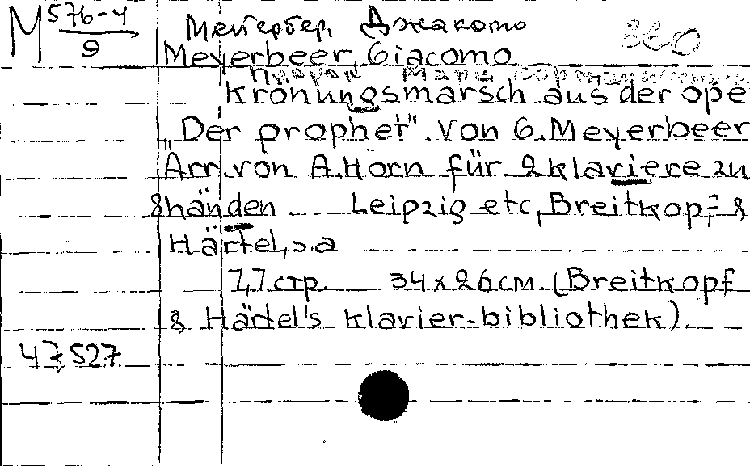 M 576-4/9
Мейербер, Джакомо
360
Meyerbeer, Giacomo
Krönungsmarsch aus der ope
"Der prophet". Von G. Meyerbeer
Arr. von A. Horn für 2 klaviere zu
8 händen Leipzig etc, Breitkopf &
Härtel, s.a
7,7 стр. 34 x 26 см. (Breitkopf
& Härtel's klavier-bibliothek).
47527